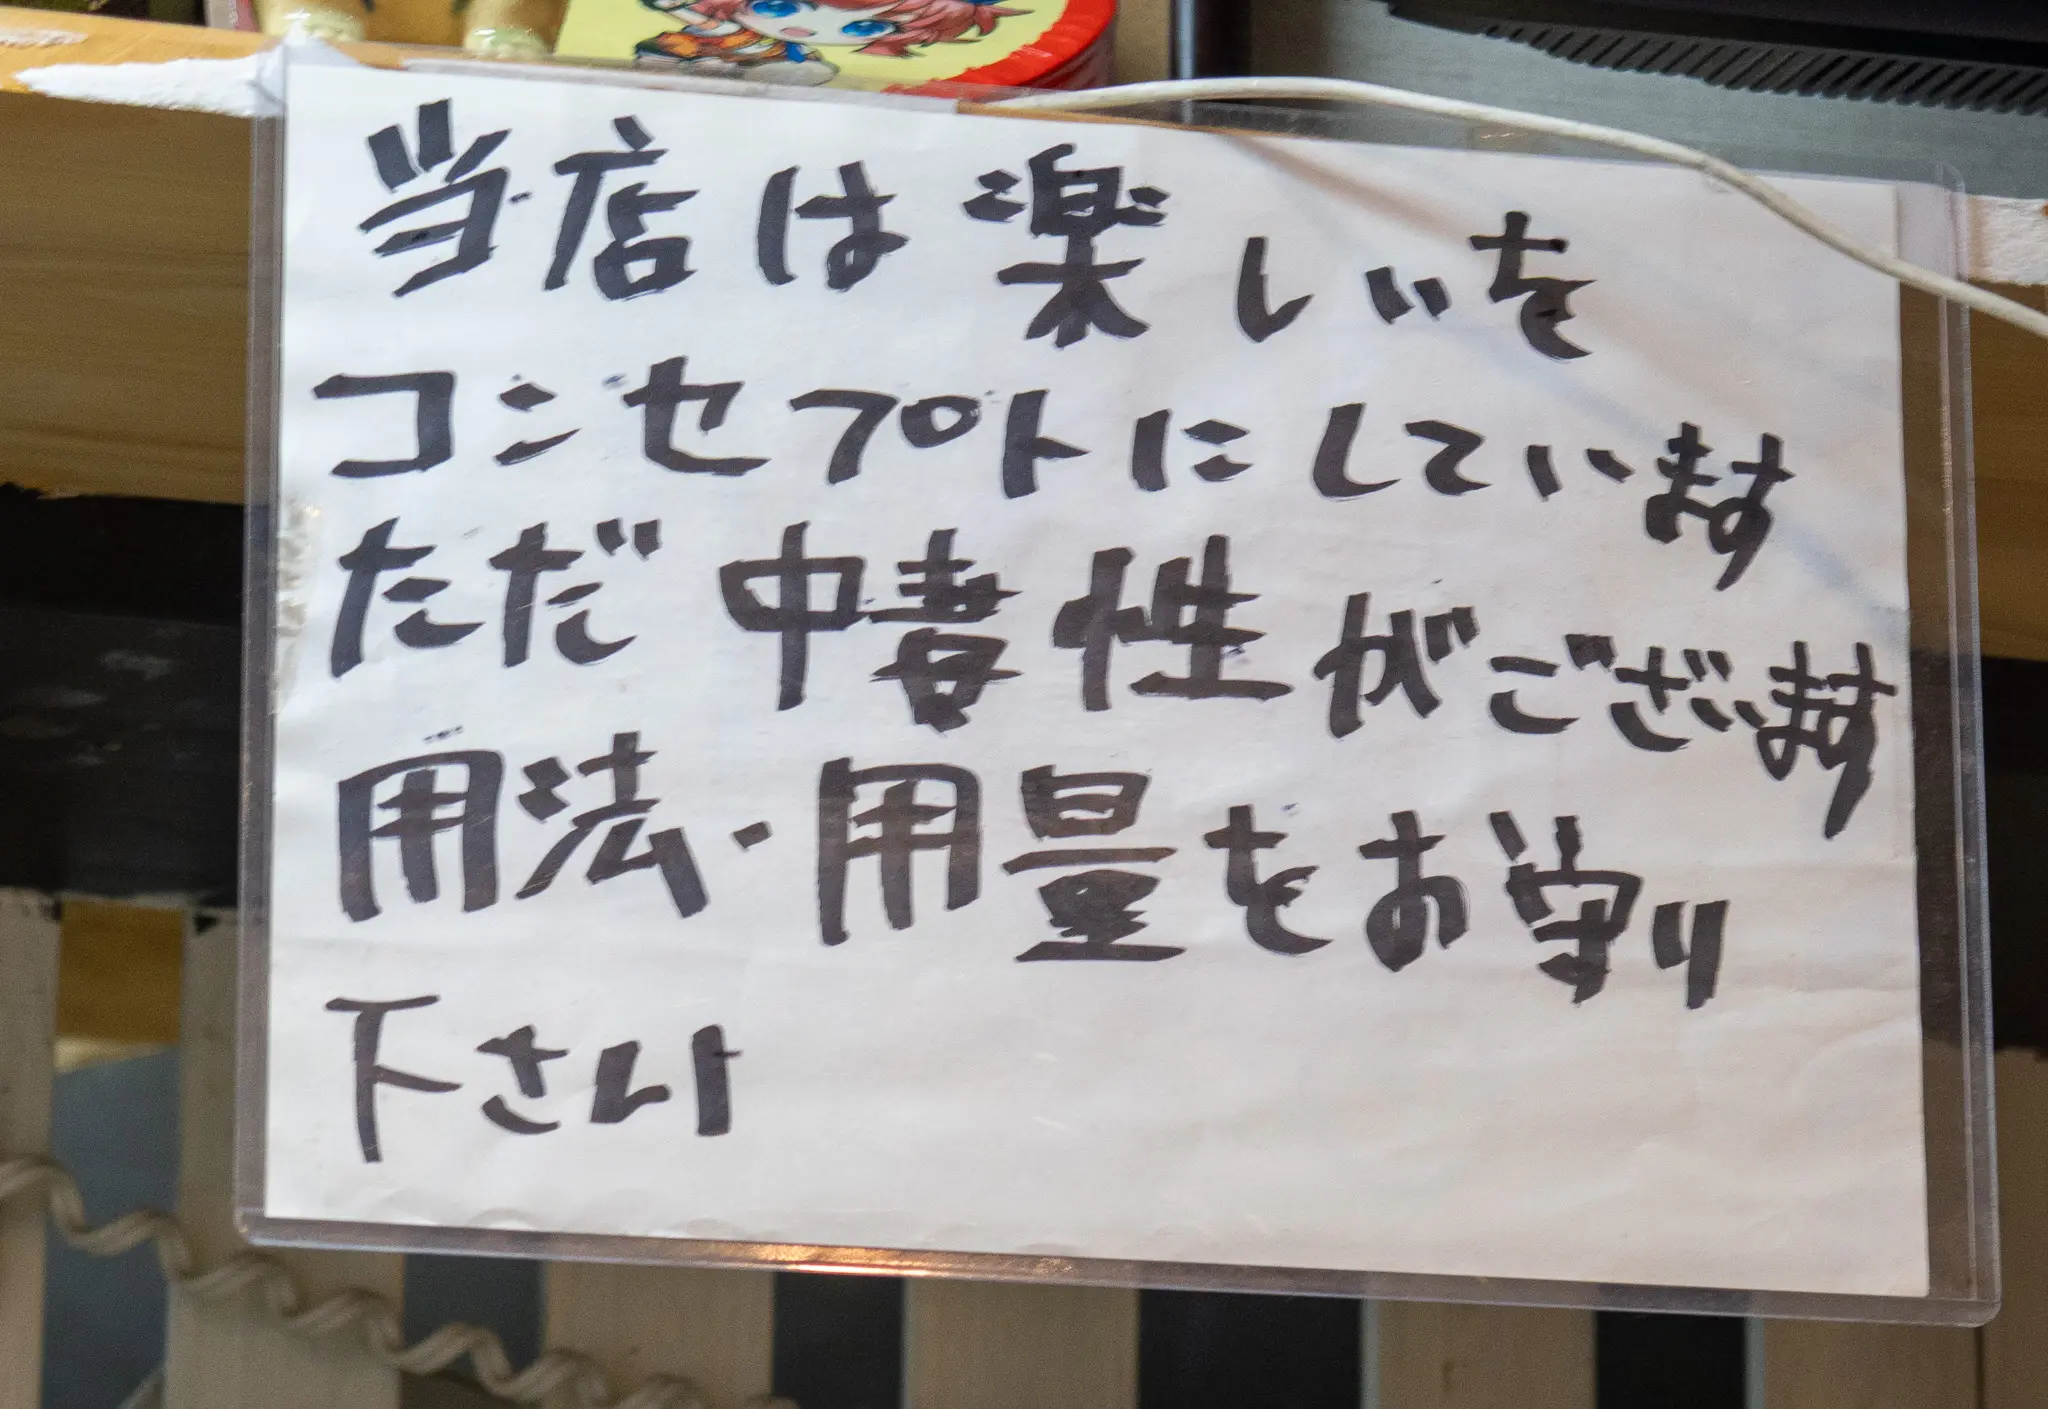 当店は楽しいを
コンセプトにしています
ただ中毒性がございます
用法・用量をお守り
下さい